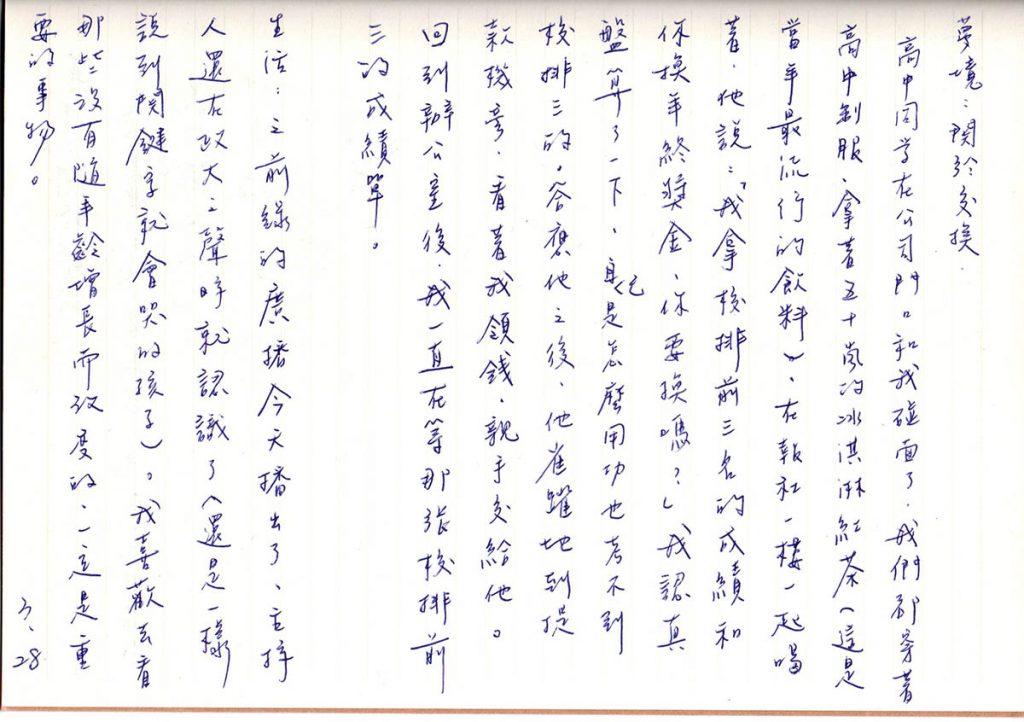 夢境：關於交換
高中同學在公司門口和我碰面了。我們都穿著
高中制服，拿著五十嵐的冰淇淋紅茶（這是
當年最流行的飲料），在報社一樓一起喝
著。他說：「我拿校排前三名的成績和
你換年終獎金，你要換嗎？」我認真
盤算了一下，自己是怎麼用功也考不到
校排三的。答應他之後，他雀躍地到提
款機旁，看著我領錢，親手交給他。
回到辦公室後，我一直在等那張校排前
三的成績單。
生活：之前錄的廣播今天播出了，主持
人還在政大之聲時就認識了（還是一樣
說到關鍵字就會哭的孩子）。我喜歡去看
那些沒有隨年齡增長而改變的，一定是重
要的事物。
3.28